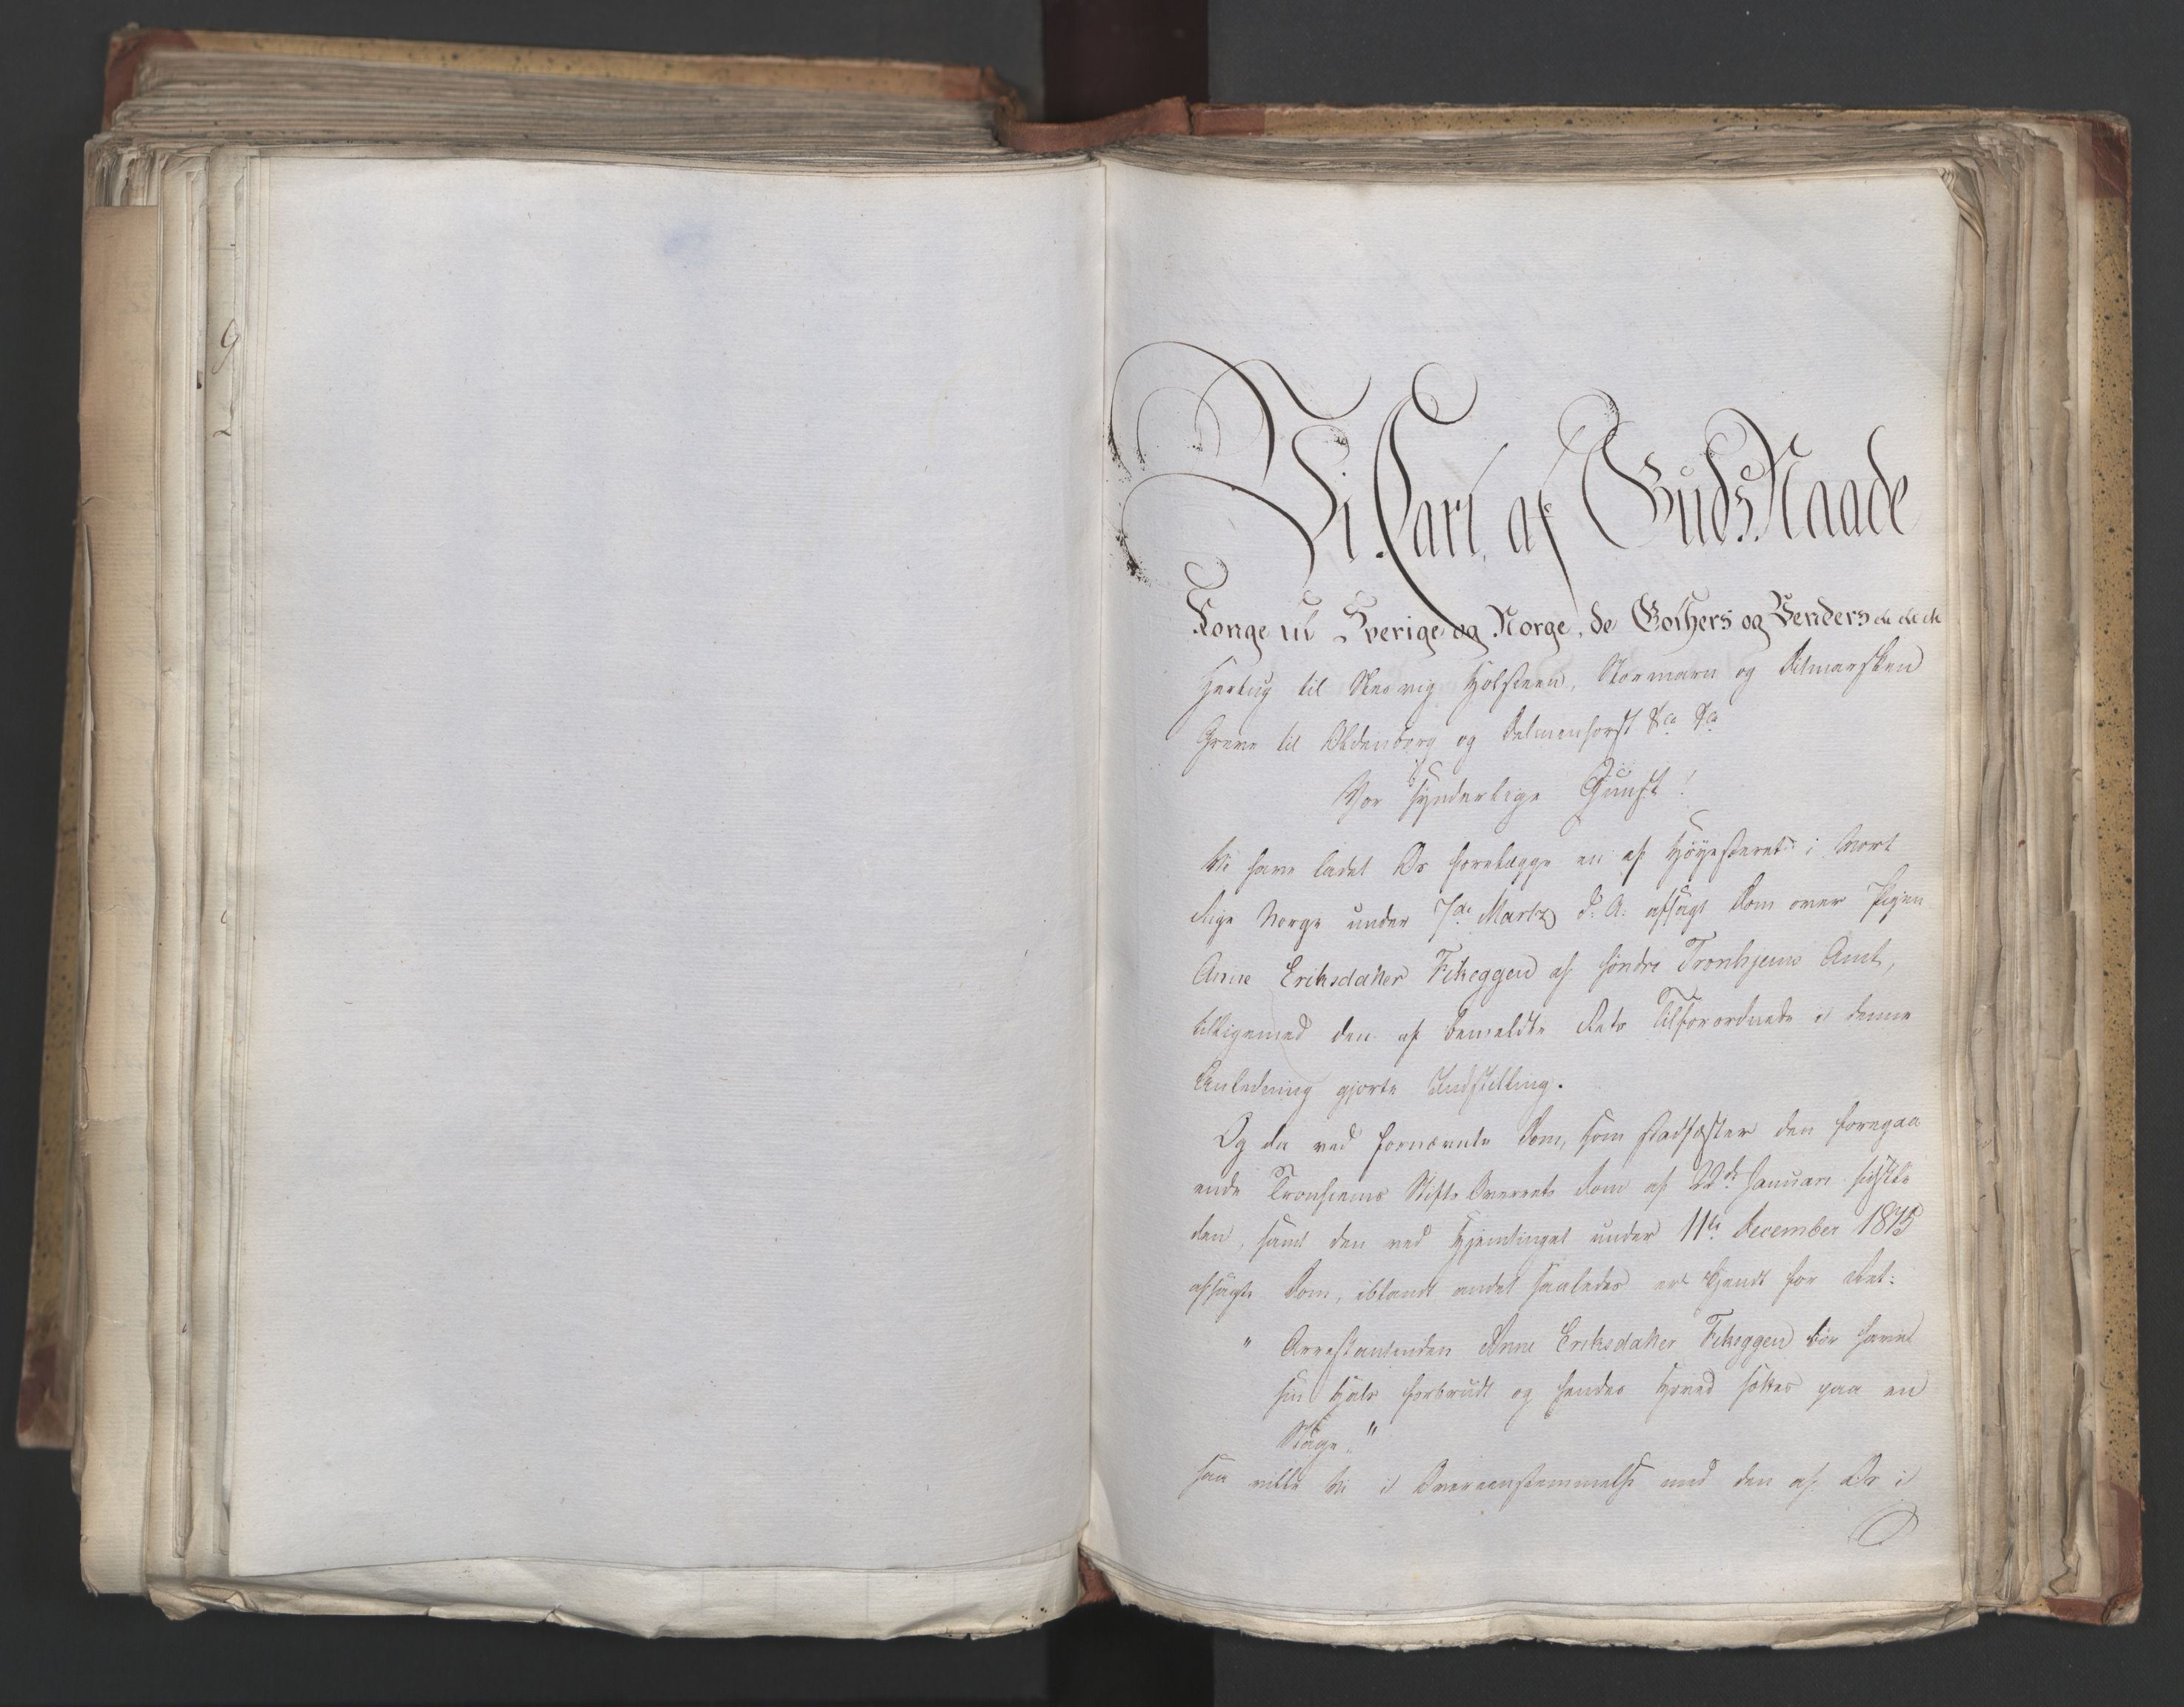 Vi Carl af Guds Naade
Konge til Sverige og Norge, de Gothers og Venders etc etc etc
Hertug til Slesvig Holsteen, Stormarn og Ditmarsken
Greve til Oldenborg og Delmenhorst &ca &ca
Vor synderlige Gunst!
Vi have ladet Os forelægge en af Høyesteret i Vort
Rige Norge under 7de Martz d: A: afsagt Dom over Pigen
Anne Eriksdatter Fikeggen af søndre Tronhjems Amt,
tilligemed den af bemeldte Rets Tilforordnede i denne
Anledning gjorte Indstilling.
Og da ved fornævnte Dom, som stadfæster den foregaa
ende Tronhiems Stifts Overrets Dom af 22de Januari sidstle
den, samt den ved Hjemtinget under 11te December 1815
afsagte Dom, iblandt andet saaledes er kjendt for Ret:
" Arrestantinden Anne Eriksdatter Fikeggen bør have
sin Hals forbrudt og hendes Hoved sættes paa en
Stage."
saa ville Vi i Overeensstemmelse med den af Os i
9